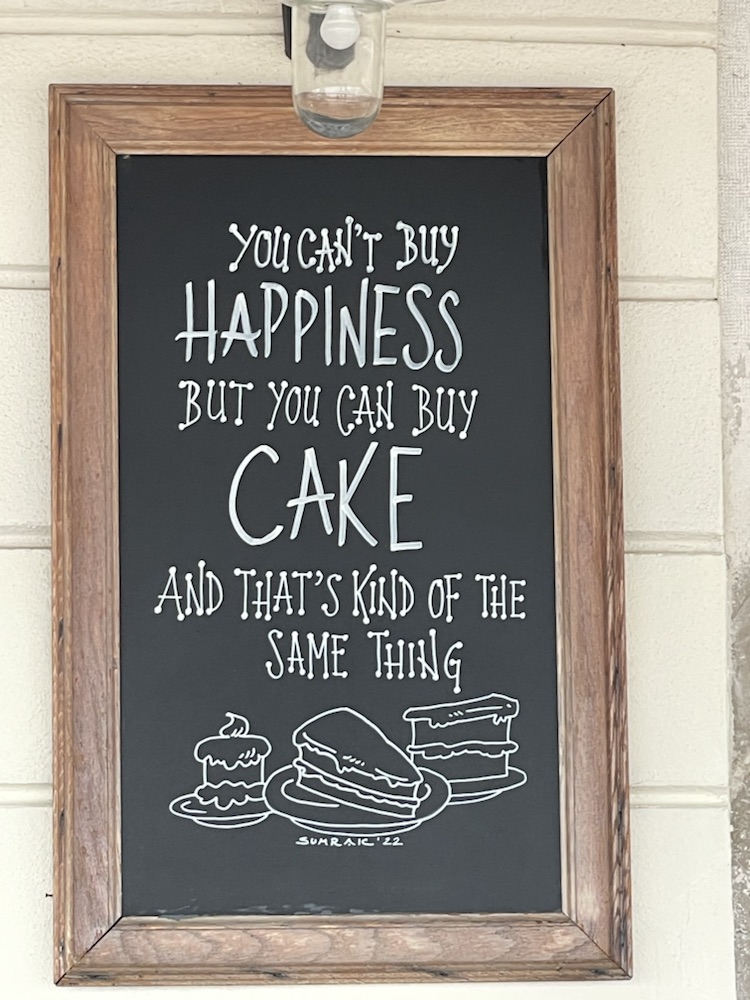 YOU CAN'T BUY
HAPPINESS
BUT YOU CAN BUY
CAKE
AND THAT'S KIND OF THE
SAME THING
SUMRAK '22